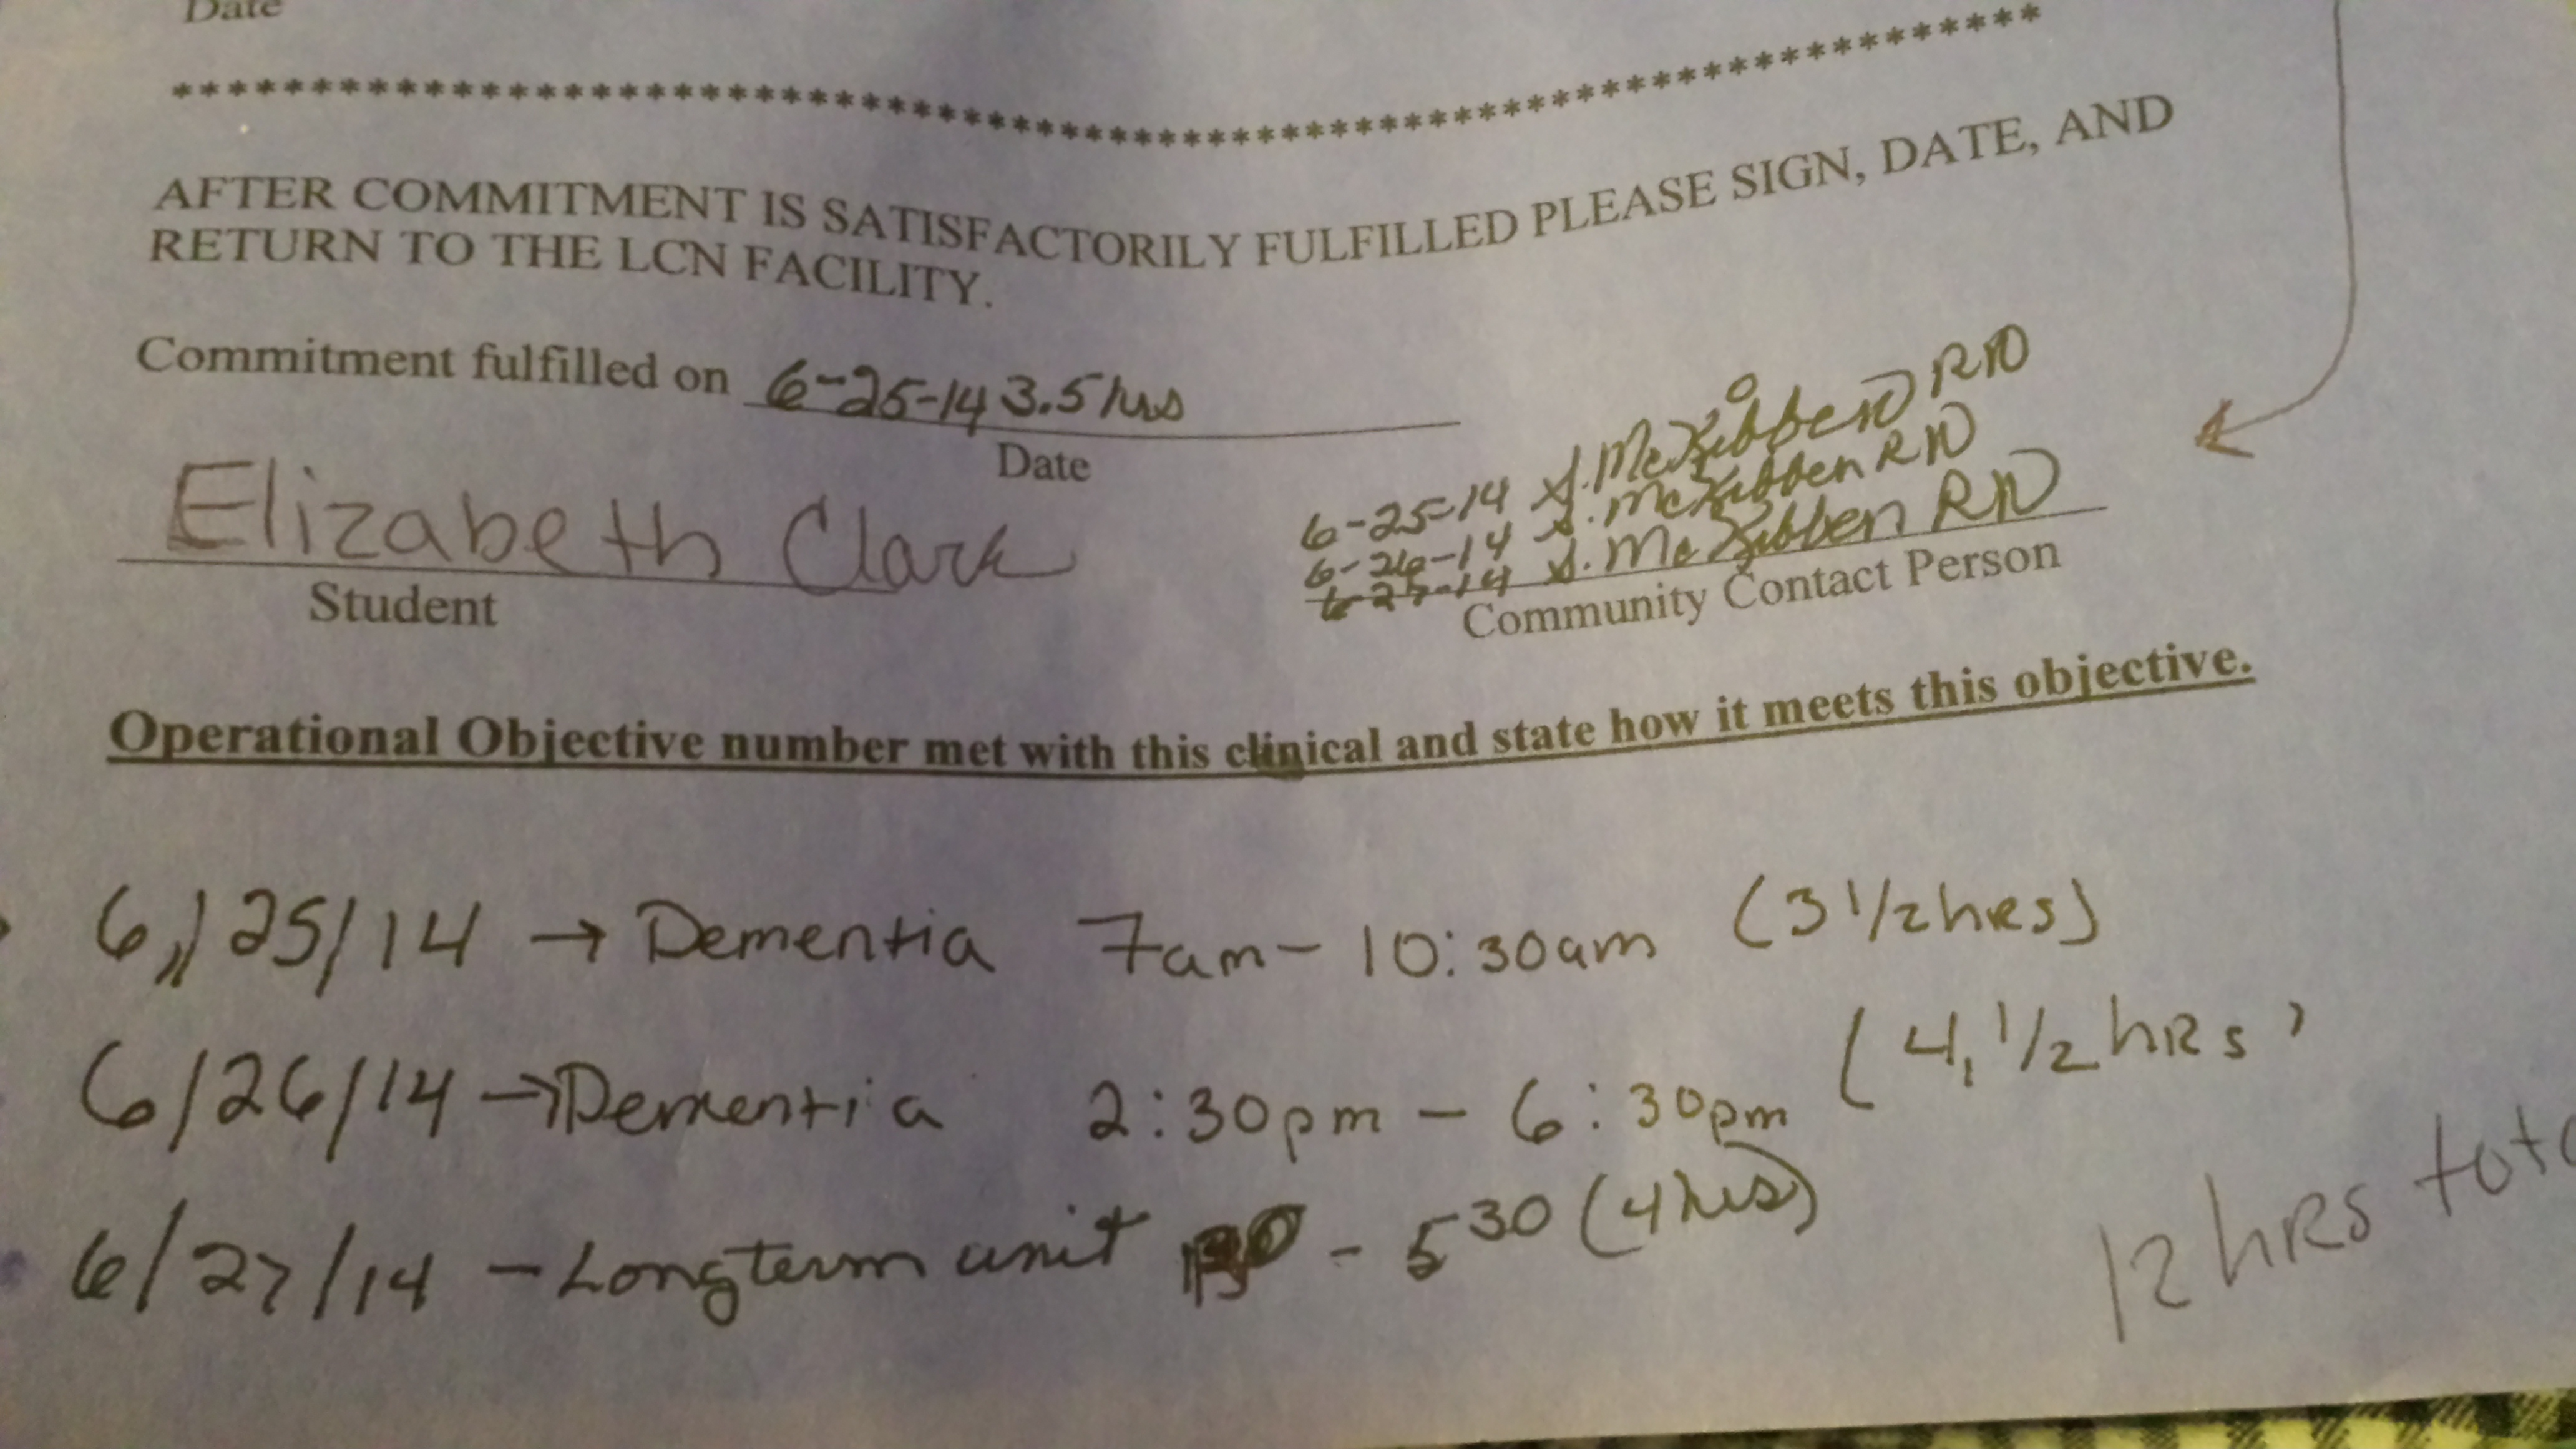 Date
******************************************************************************
AFTER COMMITMENT IS SATISFACTORILY FULFILLED PLEASE SIGN, DATE, AND
RETURN TO THE LCN FACILITY.
Commitment fulfilled on 6-25-14 3.5 hrs
Date
6-25-14 S. McKibben RN
6-26-14 S. McKibben RN
6-27-14 S. McKibben RN
Elizabeth Clark
Student
Community Contact Person
Operational Objective number met with this clinical and state how it meets this objective.
6/25/14 → Dementia 7am - 10:30am (3 1/2 hrs)
6/26/14 → Dementia 2:30pm - 6:30pm (4, 1/2 hrs)
6/27/14 - Longterm unit - 5 30 (4 hrs)
12 hrs